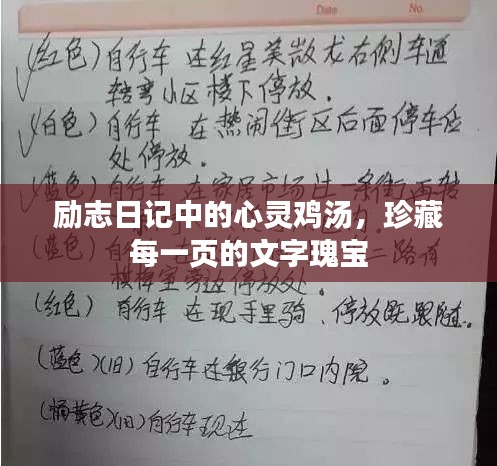 Date No.
(红色)自行车 在红星美凯龙右侧车道
转弯小区楼下停放.
(白色)自行车 在热闹街区后面停车位
处停放.
(蓝色)自行车 在家居市场
励志日记中的心灵鸡汤，珍藏
每一页的文字瑰宝
二路有
停放处.
(红色) 自行车 在现手里骑、停放既跟随.
(蓝色)(旧)自行车在银行门口内院。
(橘黄色)(旧)自行车现在